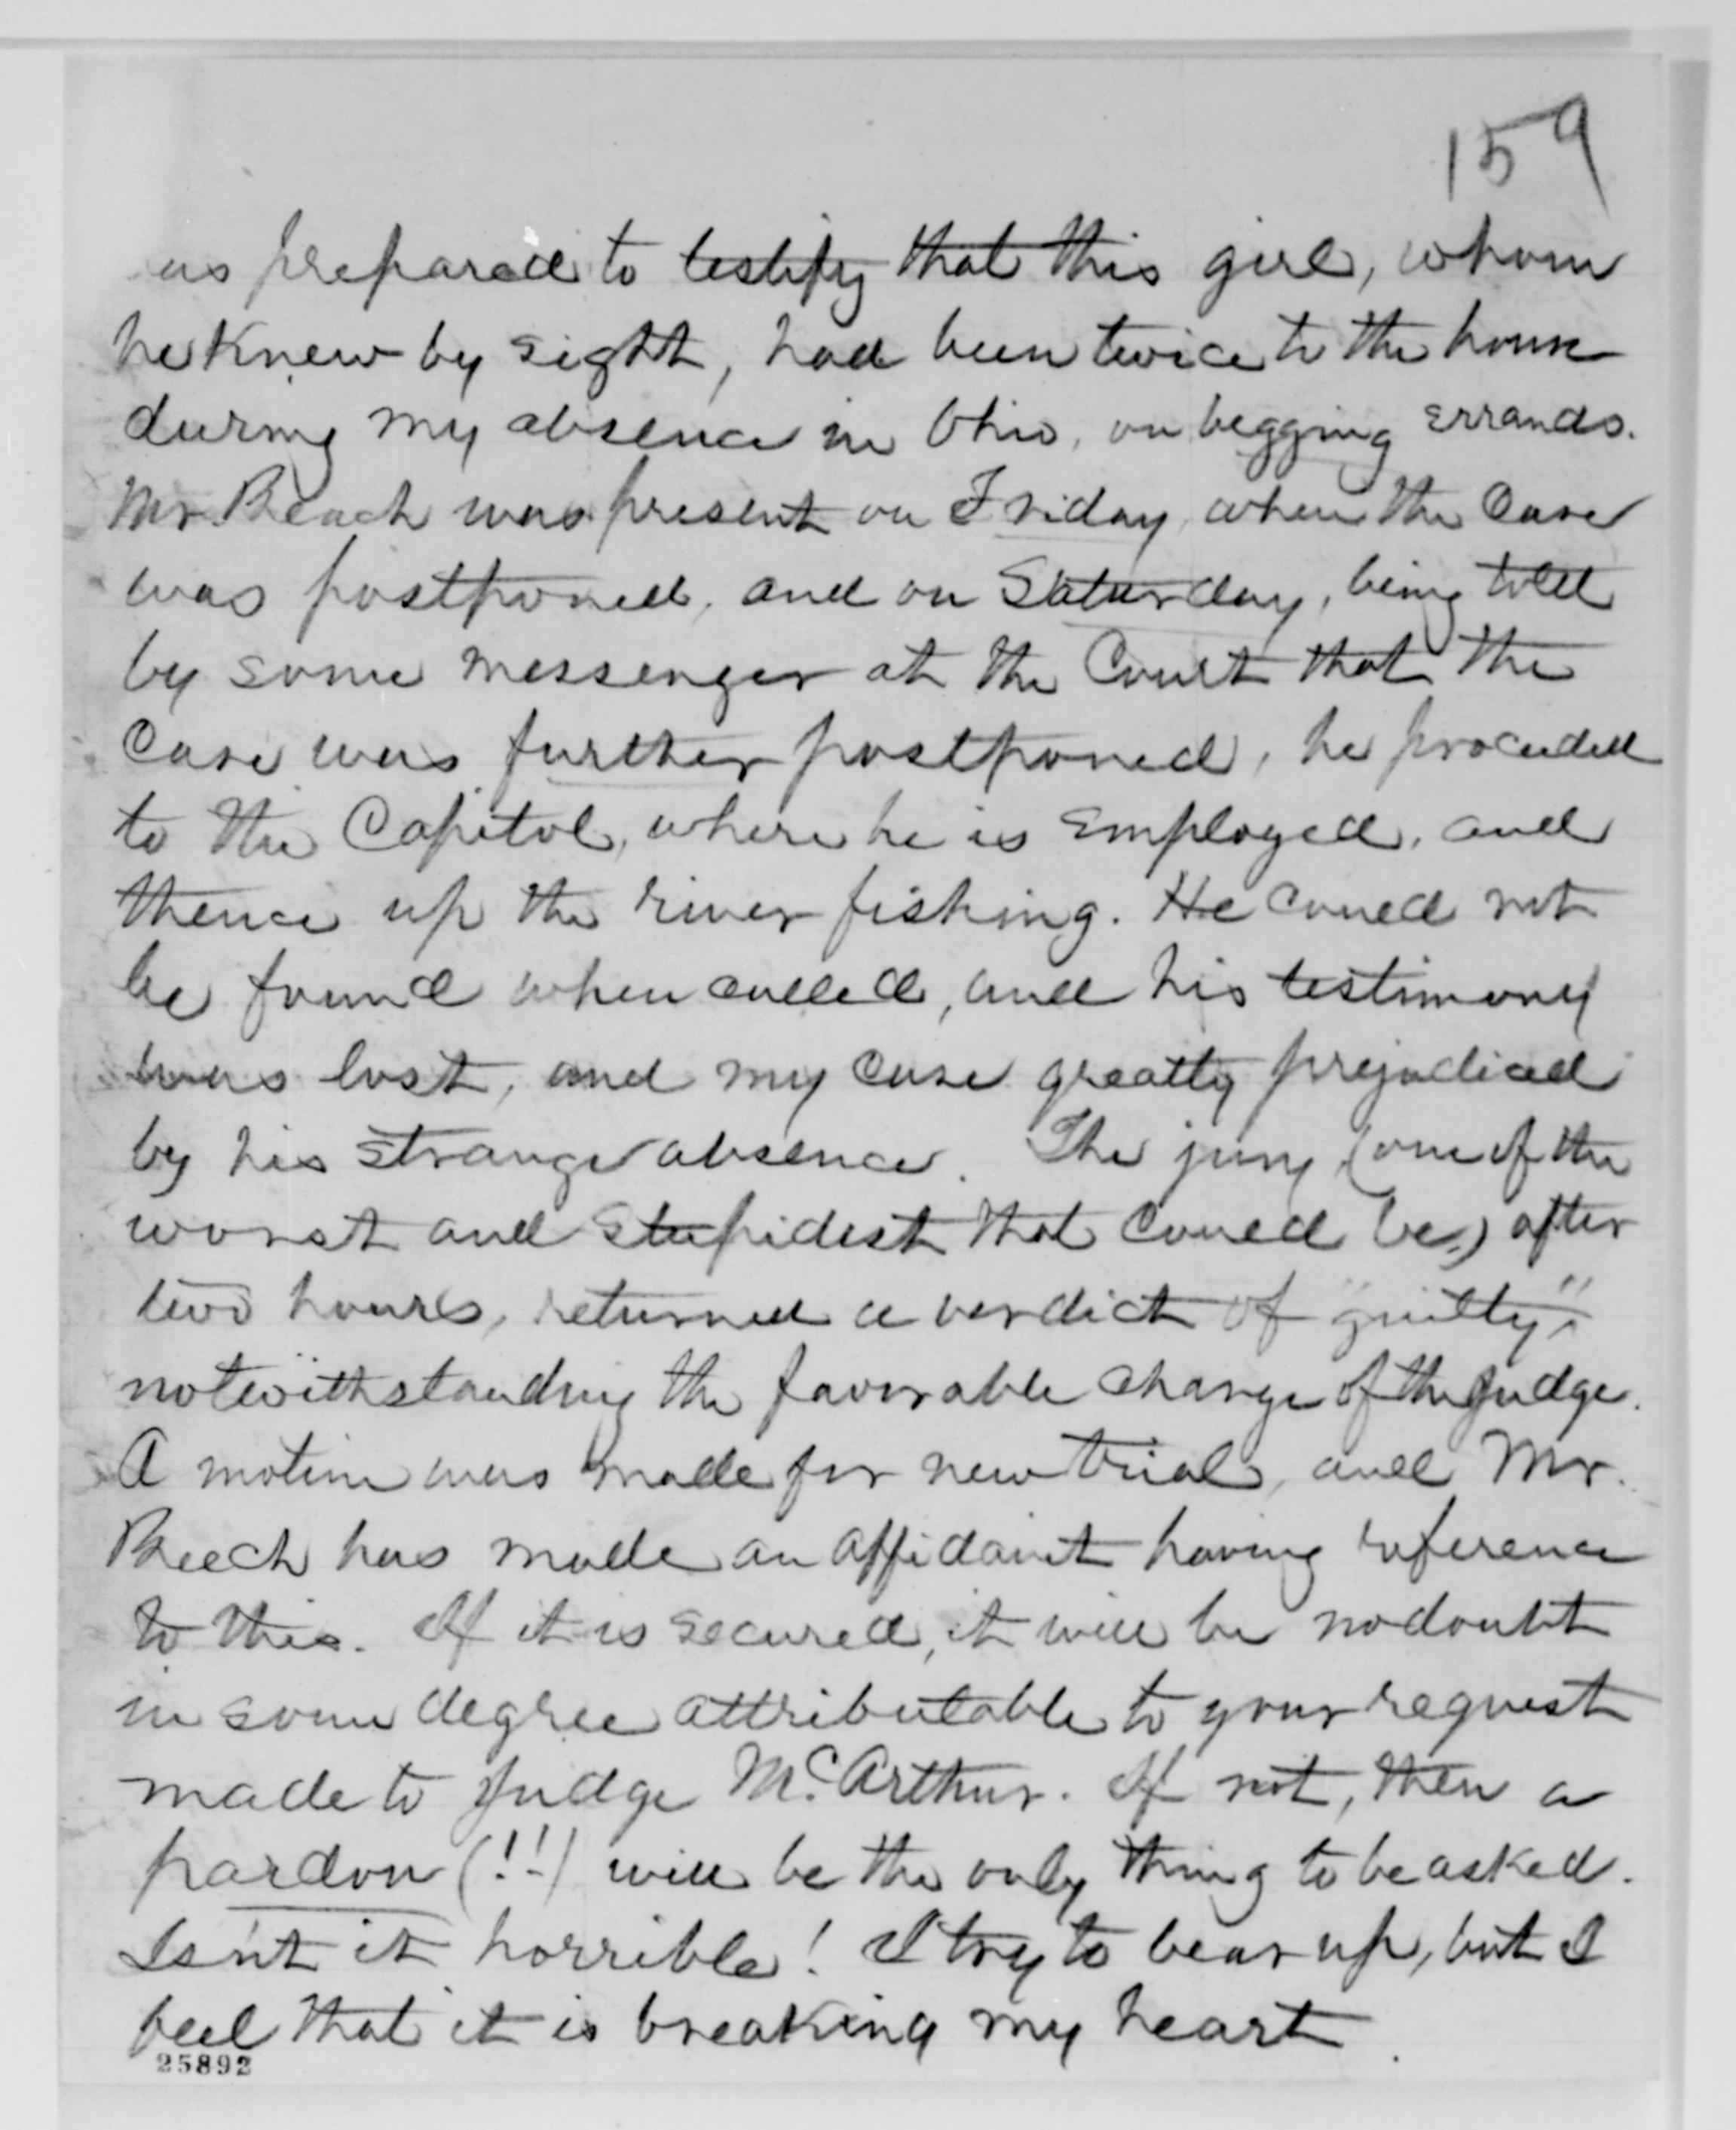 159
as prepared to testify that this girl, whom
he knew by sight, had been twice to the house
during my absence in Ohio, on begging errands.
Mr. Beach was present on Friday, when the case
was postponed, and on Saturday, being told
by some messenger at the Court that the
case was further postponed, he proceeded
to the Capitol, where he is employed, and
thence up the river fishing. He could not
be found when called, and his testimony
was lost, and my case greatly prejudiced
by his strange absence. The jury, (one of the
worst and stupidest that could be,) after
two hours, returned a verdict of "guilty",
notwithstanding the favorable charge of the Judge.
A motion was made for new trial, and Mr.
Beech has made an affidavit having reference
to this. If it is secured, it will be no doubt
in some degree attributable to your request
made to Judge McArthur. If not, then a
pardon (!!) will be the only thing to be asked.
Isn't it horrible! I try to bear up, but I
feel that it is breaking my heart.
25892